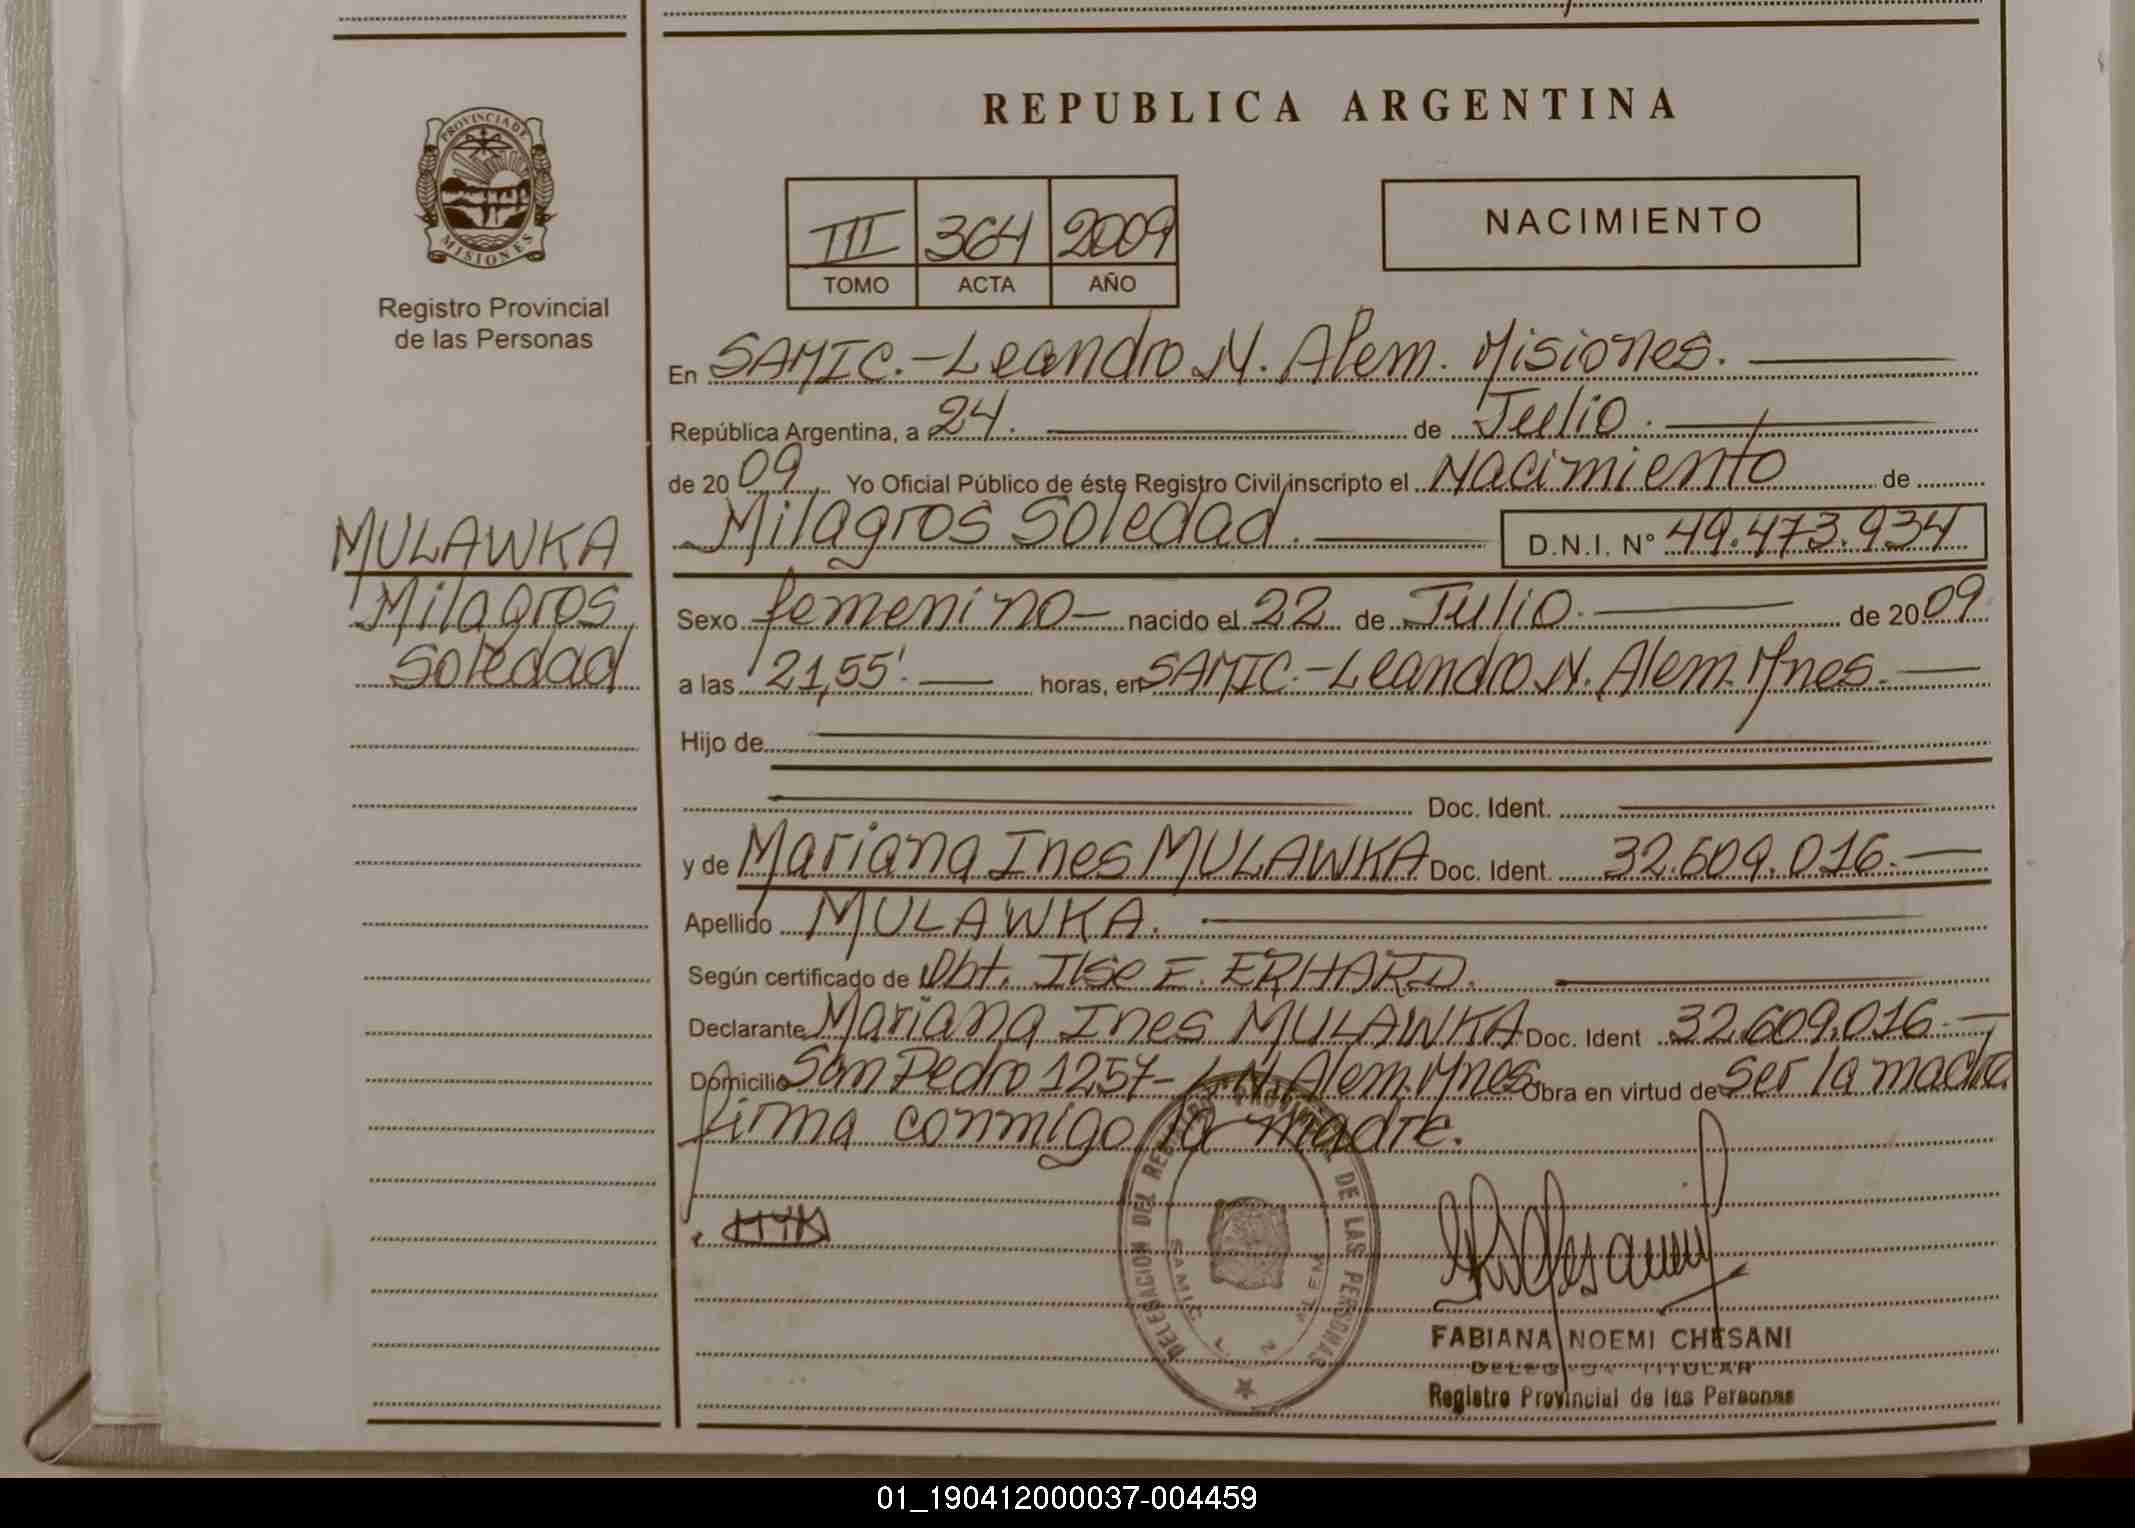 PROVINCIA DE
MISIONES
Registro Provincial
de las Personas
MULAWKA
Milagros
Soledad
REPUBLICA ARGENTINA
III 364 2009
TOMO ACTA AÑO
NACIMIENTO
En SAMIC.-Leandro N. Alem. Misiones.
República Argentina, a 24. de Julio.
de 20 09 Yo Oficial Público de éste Registro Civil inscripto el Nacimiento de
Milagros Soledad. D.N.I. N° 49.473.934
Sexo femenino nacido el 22 de Julio. de 20 09.
a las 21,55'. horas, en SAMIC.-Leandro N. Alem. Mnes.
Hijo de
Doc. Ident.
y de Mariana Ines MULAWKA Doc. Ident. 32.609.016.
Apellido MULAWKA.
Según certificado de Obt. Ilse E. ERHARD.
Declarante Mariana Ines MULAWKA Doc. Ident 32.609.016.
Domicilio San Pedro 1257- L.N. Alem. Mnes. Obra en virtud de ser la madre
firma conmigo la madre.
DELEGACION DEL REGISTRO PROVINCIAL DE LAS PERSONAS
SAMIC L. N. ALEM
FABIANA NOEMI CHESANI
DELEGADA TITULAR
Registro Provincial de las Personas
01_190412000037-004459